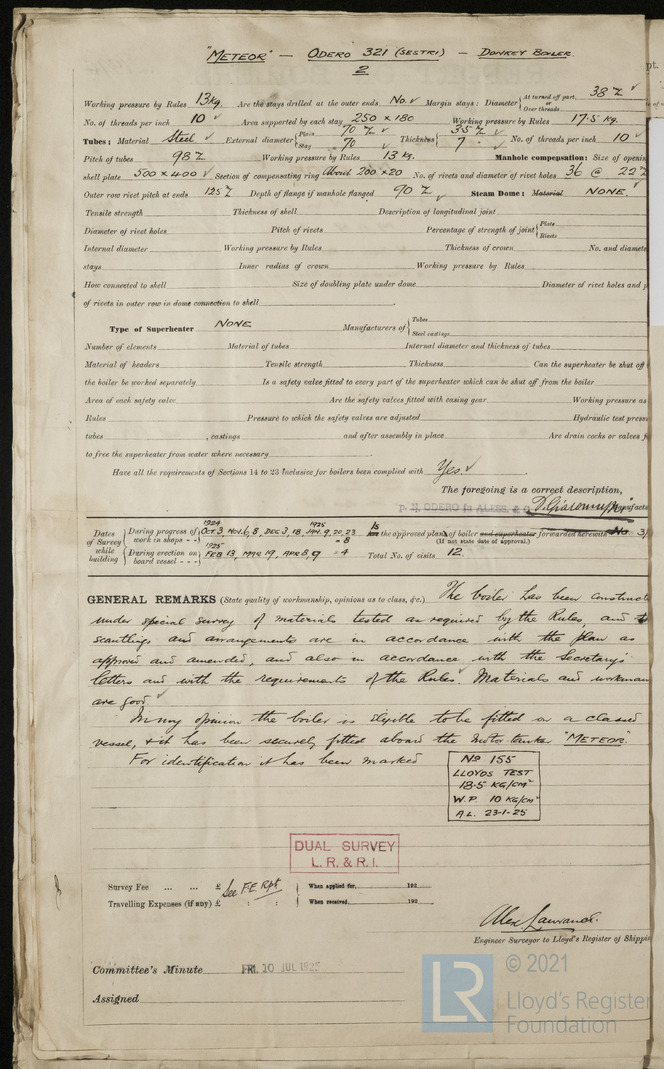 "METEOR" — ODERO 321 (SESTRI) — DONKEY BOILER
2
Working pressure by Rules 13 kg. Are the stays drilled at the outer ends No. ✓ Margin stays: Diameter { At turned off part, or Over threads 38 % ✓
No. of threads per inch 10 ✓ Area supported by each stay 250 × 180 Working pressure by Rules 17.5 kg.
Tubes; Material Steel ✓ External diameter { Plain 70 % ✓ Stay 70 Thickness { 3.5 % ✓ 7 · ✓ No. of threads per inch 10 ✓
Pitch of tubes 98 % Working pressure by Rules 13 kg. Manhole compensation: Size of openin
shell plate 500 × 400 ✓ Section of compensating ring About 200 × 20 No. of rivets and diameter of rivet holes 36 @ 22 %
Outer row rivet pitch at ends 125 % Depth of flange if manhole flanged 90 % ✓ Steam Dome: Material NONE ✓
Tensile strength Thickness of shell Description of longitudinal joint
Diameter of rivet holes Pitch of rivets Percentage of strength of joint { Plate Rivets
Internal diameter Working pressure by Rules Thickness of crown No. and diamete
stays Inner radius of crown Working pressure by Rules
How connected to shell Size of doubling plate under dome Diameter of rivet holes and p
of rivets in outer row in dome connection to shell
Type of Superheater NONE Manufacturers of { Tubes Steel castings
Number of elements Material of tubes Internal diameter and thickness of tubes
Material of headers Tensile strength Thickness Can the superheater be shut off
the boiler be worked separately Is a safety valve fitted to every part of the superheater which can be shut off from the boiler
Area of each safety valve Are the safety valves fitted with easing gear Working pressure as
Rules Pressure to which the safety valves are adjusted Hydraulic test press
tubes , castings and after assembly in place Are drain cocks or valves f
to free the superheater from water where necessary
Have all the requirements of Sections 14 to 23 inclusive for boilers been complied with Yes ✓
The foregoing is a correct description,
p. N. ODERO fu ALESS. & Manufacte
Dates of Survey while building { During progress of work in shops - - 1924 OCT. 3, NOV. 6, 8, DEC 3, 18, 1925 JAN. 9, 20, 23 = 8 Is the approved plan of boiler and superheater forwarded herewith No
(If not state date of approval.)
During erection on board vessel - - - 1925 FEB 13, MAR 19, APR 8, 9 = 4 Total No. of visits 12.
GENERAL REMARKS (State quality of workmanship, opinions as to class, &c.) The boiler has been construct
under special survey of materials tested as required by the Rules, and
scantlings and arrangements are in accordance with the plan as
approved and amended, and also in accordance with the Secretary's
letters and with the requirements of the Rules. Materials and workman
are good. ✓
In my opinion the boiler is eligible to be fitted on a classed
vessel, & it has been securely fitted aboard the motor tanker "METEOR".
For identification it has been marked
No 155
LLOYDS TEST
18.5 KG/CM²
W.P. 10 KG/CM²
A.L. 23-1-25
DUAL SURVEY
L. R. & R. I.
Survey Fee ... ... £ See F.E. Rpt When applied for, 192
Travelling Expenses (if any) £ : : When received, 192
Alex Lawrance.
Engineer Surveyor to Lloyd's Register of Shippin
Committee's Minute FRI. 10 JUL 1925
Assigned
© 2021
LR
Lloyd's Register
Foundation